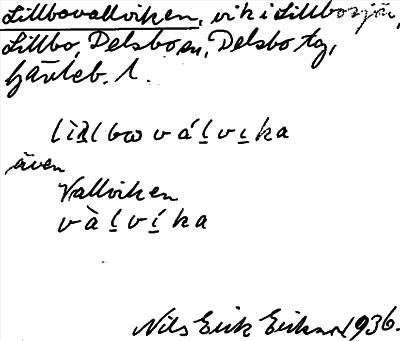 Lillbovallviken, vik i Lillbosjön,
Lillbo, Delsbo sn, Delsbo tg,
Gävleb. l.
lìlbω vál̲vi̲ka
även
Vallviken
vàl̲ví̲ka
Nils Erik Eriksson 1936.